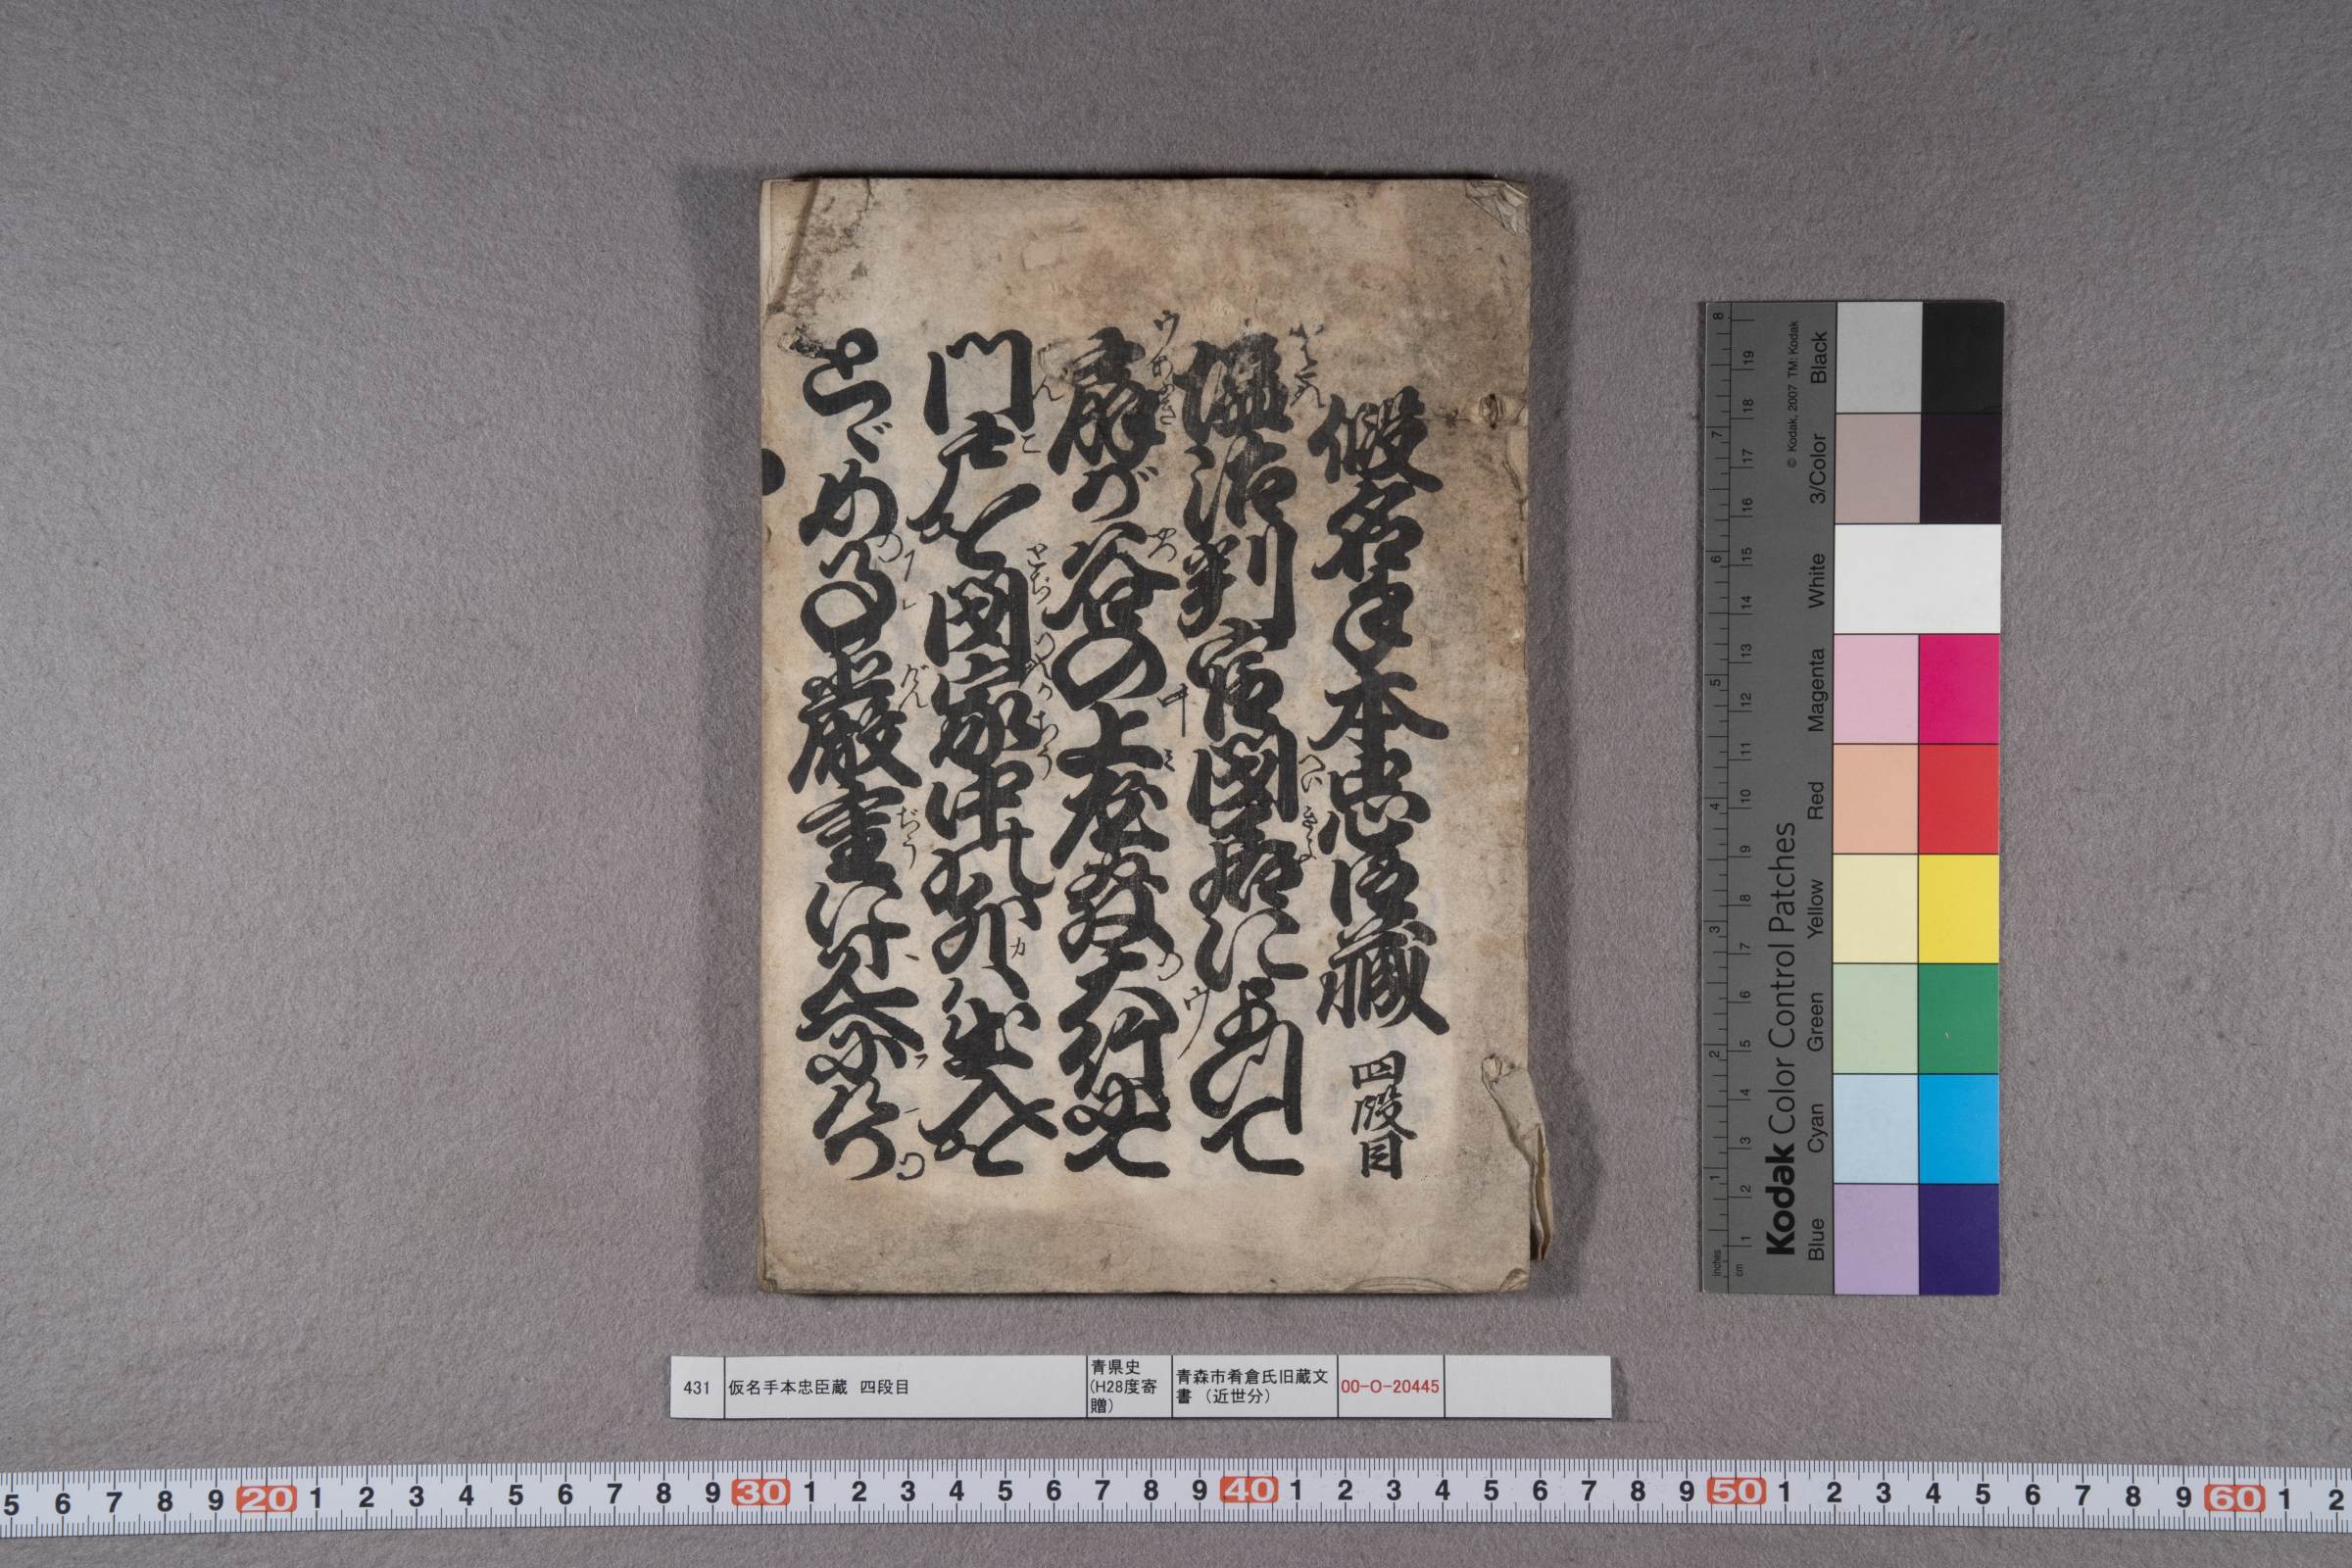 假名手本忠臣蔵 四段目
塩冶判官閉居に よつて
扇が谷の上屋敷大竹にて
門戸を閉家中の外は出入を
とゞめ事厳重に
431 仮名手本忠臣蔵 四段目 青県史(H28度寄贈) 青森市肴倉氏旧蔵文書（近世分） 00-O-20445
Kodak Color Control Patches
© Kodak, 2007 TM: Kodak
Blue Cyan Green Yellow Red Magenta White 3/Color Black
inches 1 2 3 4 5 6 7 8
cm 1 2 3 4 5 6 7 8 9 10 11 12 13 14 15 16 17 18 19
5 6 7 8 9 20 1 2 3 4 5 6 7 8 9 30 1 2 3 4 5 6 7 8 9 40 1 2 3 4 5 6 7 8 9 50 1 2 3 4 5 6 7 8 9 60 1 2